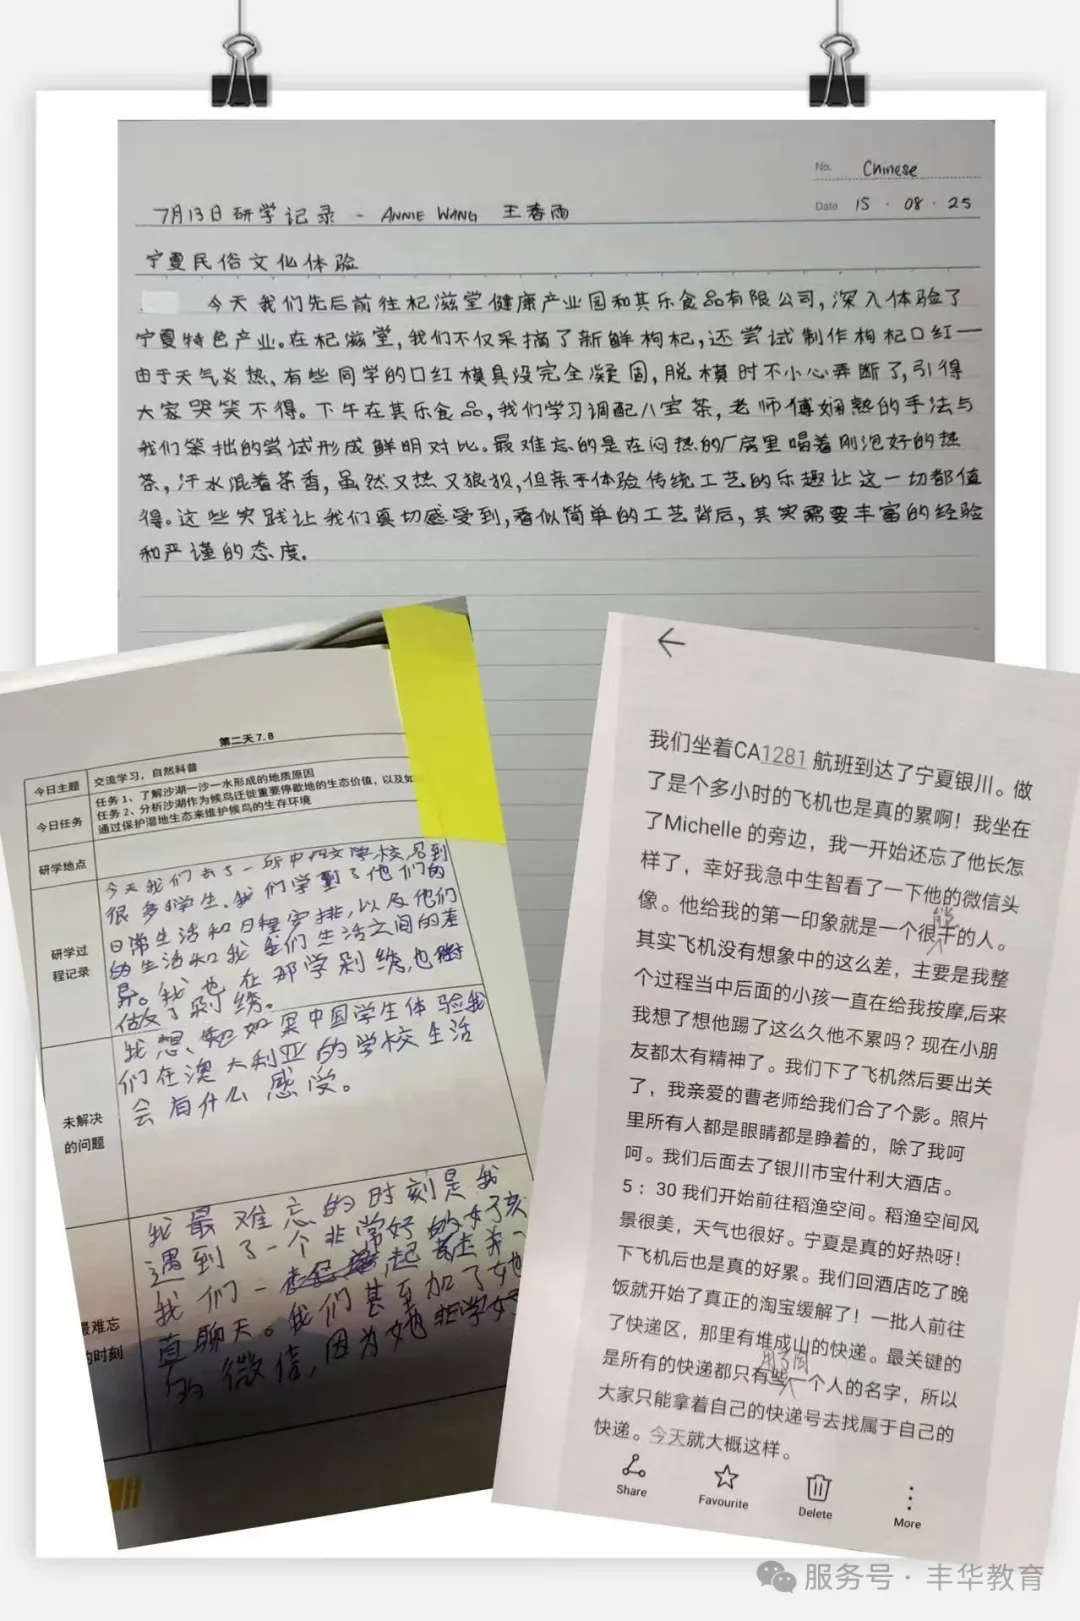 No. Chinese
Date 15 · 08 · 25
7月13日研学记录 - ANNIE WANG 王春雨
宁夏民俗文化体验
今天我们先后前往杞滋堂健康产业园和其乐食品有限公司,深入体验了
宁夏特色产业。在杞滋堂,我们不仅采摘了新鲜枸杞,还尝试制作枸杞口红一
由于天气炎热,有些同学的口红模具没完全凝固,脱模时不小心弄断了,引得
大家哭笑不得。下午在其乐食品,我们学习调配八宝茶,老师傅娴熟的手法与
我们笨拙的尝试形成鲜明对比。最难忘的是在闷热的厂房里喝着刚泡好的热
茶,汗水混着茶香,虽然又热又狼狈,但亲手体验传统工艺的乐趣让这一切都值
得。这些实践让我们真切感受到,看似简单的工艺背后,其实需要丰富的经验
和严谨的态度.
第二天 7.8
今日主题 交流学习,自然科普
今日任务
任务 1、了解沙湖一沙一水形成的地质原因
任务 2、分析沙湖作为候鸟迁徙重要停歇地的生态价值,以及如
通过保护湿地生态来维护候鸟的生存环境
研学地点
研学过
程记录
今天我们去了一所中学校,
很多学生。我们学到了他们的
日常生活和日程安排,以及他们
的生活和我们生活之间的差
异。我也在那学刺绣,也
做了刺绣。
未解决
的问题
我想,如果中国学生体验我
们在澳大利亚的学校生活
会有什么感受。
最难忘
的时刻
我最难忘的时刻是我
遇到了一个非常好的女孩
我们一起
聊天。我们甚至加了她
的微信,因为她非常好
我们坐着CA1281 航班到达了宁夏银川。做
了是个多小时的飞机也是真的累啊!我坐在
了Michelle 的旁边,我一开始还忘了他长怎
样了,幸好我急中生智看了一下他的微信头
像。他给我的第一印象就是一个很干的人。
其实飞机没有想象中的这么差,主要是我整
个过程当中后面的小孩一直在给我按摩,后来
我想了想他踢了这么久他不累吗?现在小朋
友都太有精神了。我们下了飞机然后要出关
了,我亲爱的曹老师给我们合了个影。照片
里所有人都是眼睛都是睁着的,除了我呵
呵。我们后面去了银川市宝什利大酒店。
5:30 我们开始前往稻渔空间。稻渔空间风
景很美,天气也很好。宁夏是真的好热呀!
下飞机后也是真的好累。我们回酒店吃了晚
饭就开始了真正的淘宝缓解了!一批人前往
了快递区,那里有堆成山的快递。最关键的
是所有的快递都只有些一个人的名字,所以
大家只能拿着自己的快递号去找属于自己的
快递。今天就大概这样。
Share Favourite Delete More
服务号 · 丰华教育